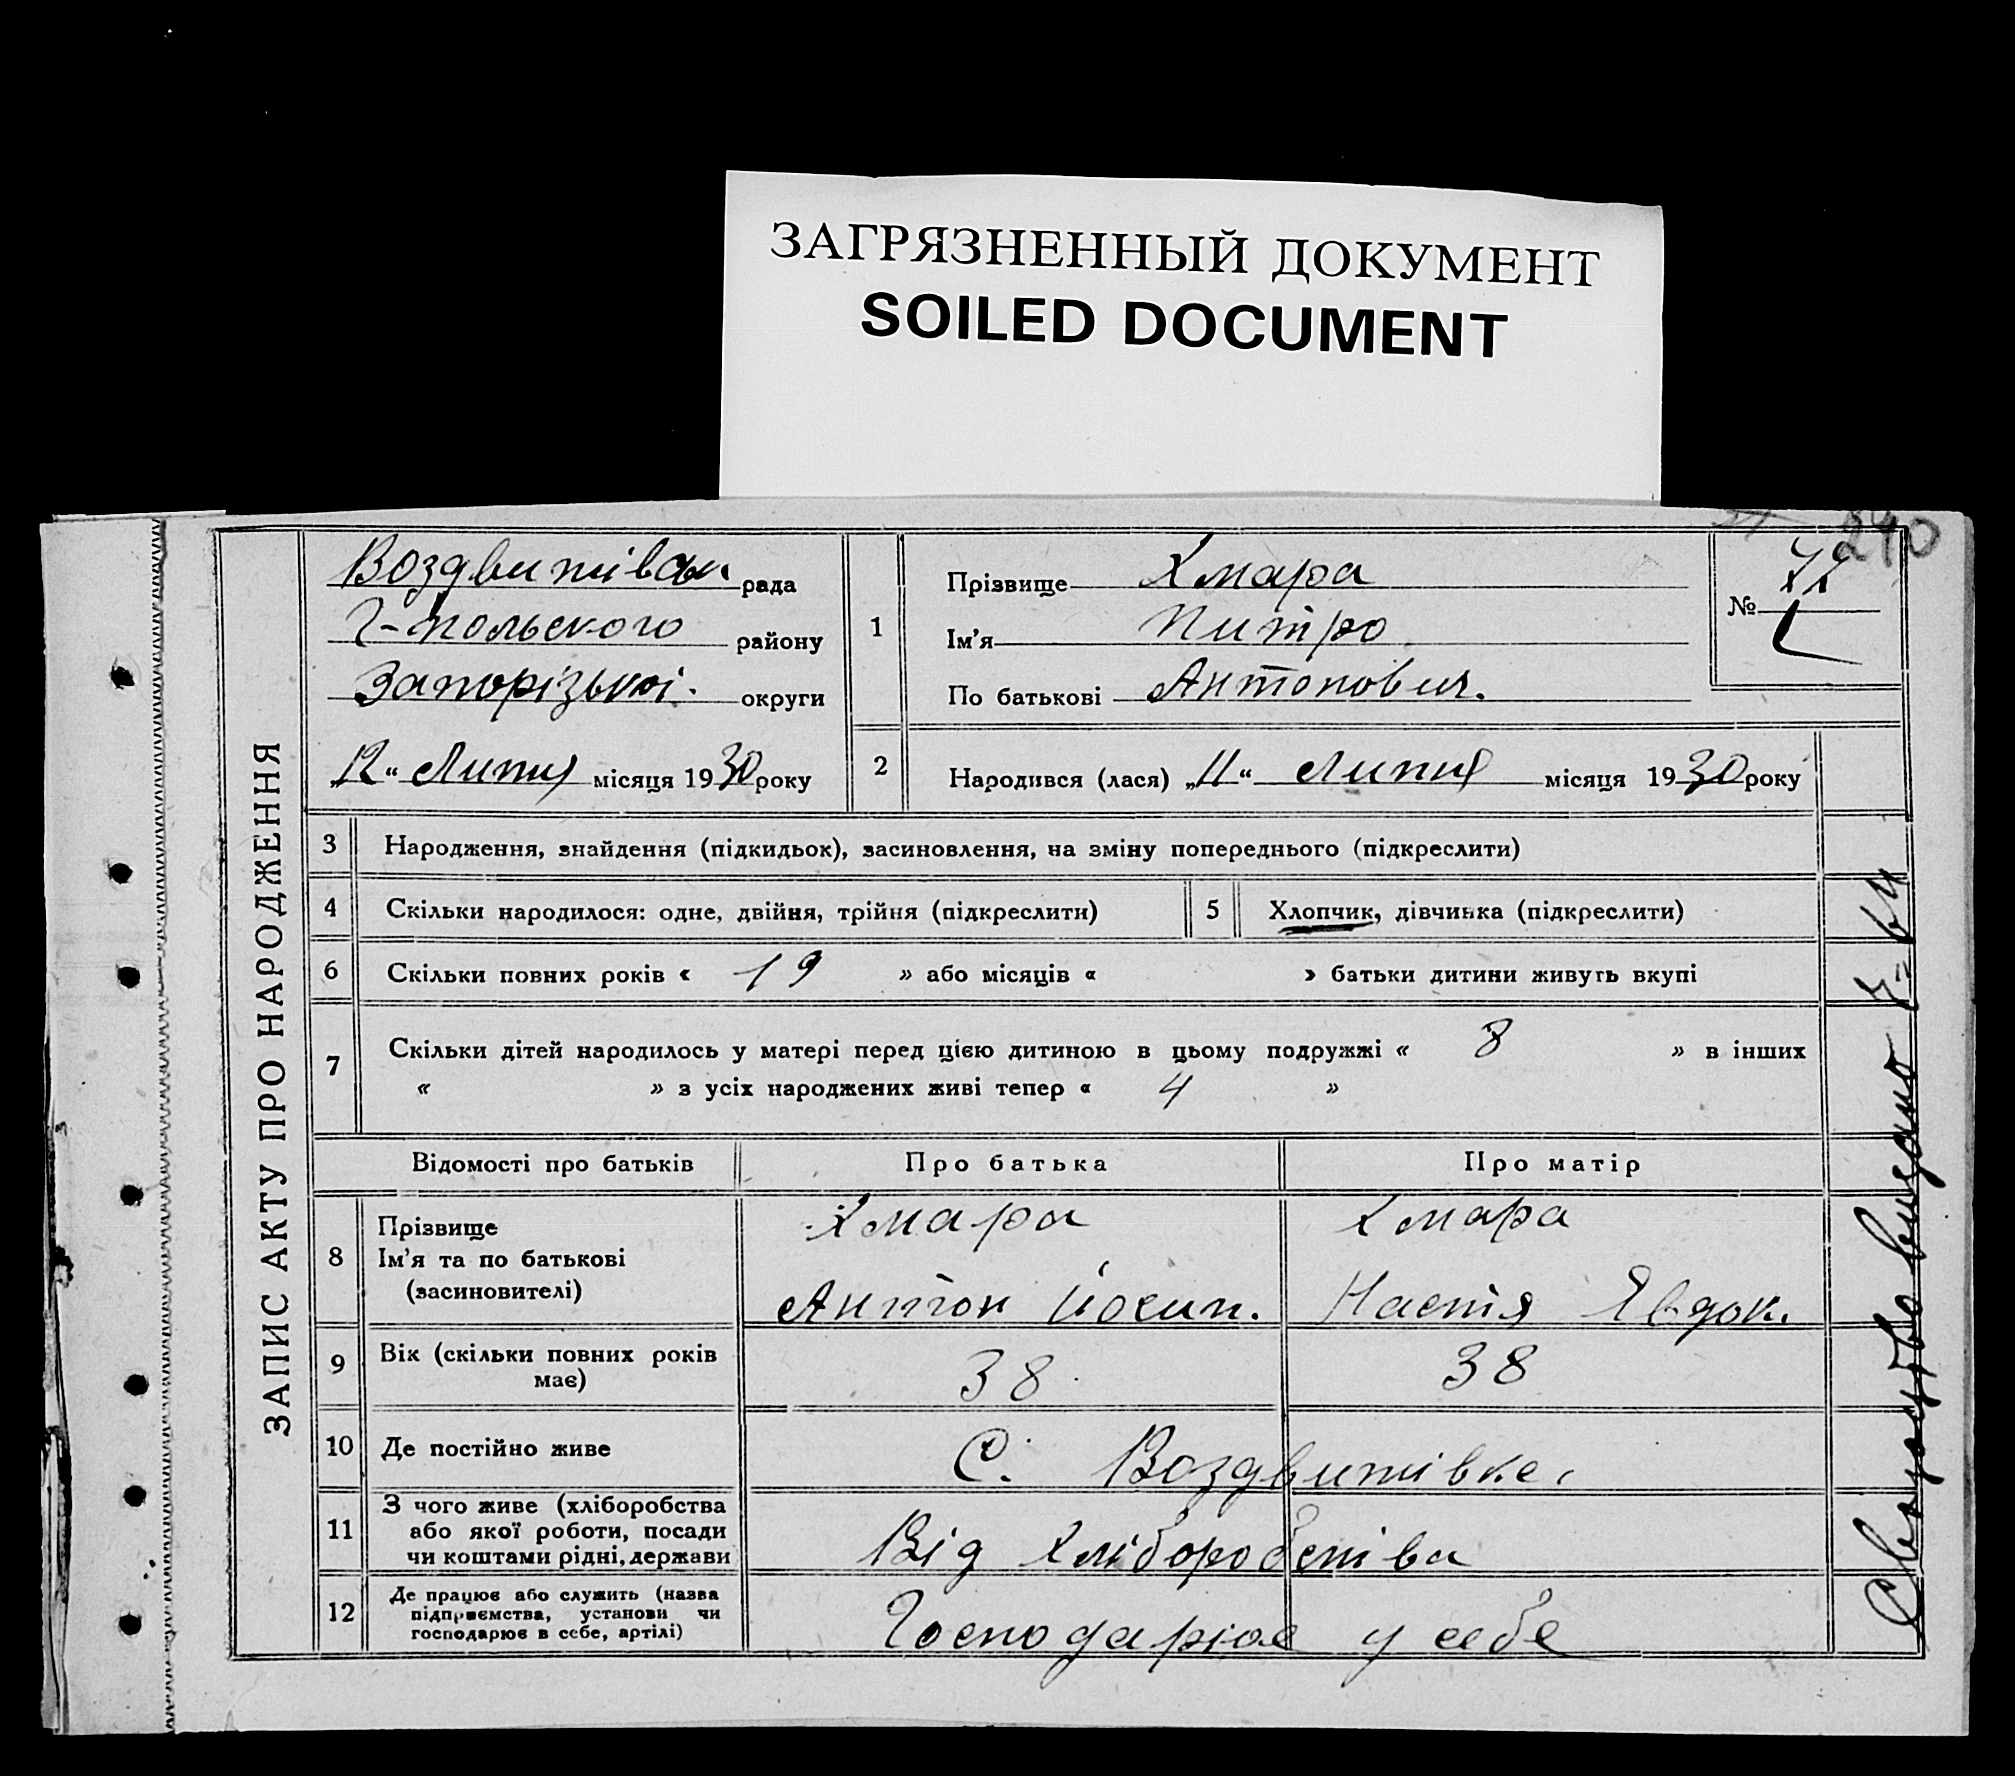 ЗАГРЯЗНЕННЫЙ ДОКУМЕНТ
SOILED DOCUMENT
240
ЗАПИС АКТУ ПРО НАРОДЖЕННЯ
Воздвижівськ рада
Г-Польського району
Запорізької. округи
„12“ Липня місяця 1930 року
1
Прізвище Хмара
Ім’я Питро
По батькові Антонович.
№ 77
2 Народився (лася) „11“ Липня місяця 1930 року
3 Народження, знайдення (підкидьок), засиновлення, на зміну попереднього (підкреслити)
4 Скільки народилося: одне, двійня, трійня (підкреслити) 5 Хлопчик, дівчинка (підкреслити)
6 Скільки повних років « 19 » або місяців « » батьки дитини живуть вкупі
7 Скільки дітей народилось у матері перед цією дитиною в цьому подружжі « 8 » в інших
« » з усіх народжених живі тепер « 4 »
Відомості про батьків Про батька Про матір
8 Прізвище Хмара Хмара
Ім’я та по батькові
(засиновителі) Антон Йосип. Настя Явдок.
9 Вік (скільки повних років
має) 38 38
10 Де постійно живе С. Воздвижівке.
11 З чого живе (хліборобства
або якої роботи, посади
чи коштами рідні, держави Від Хліборобства
12 Де працює або служить (назва
підприємства, установи чи
господарює в себе, артілі) Господарює у себе
видано